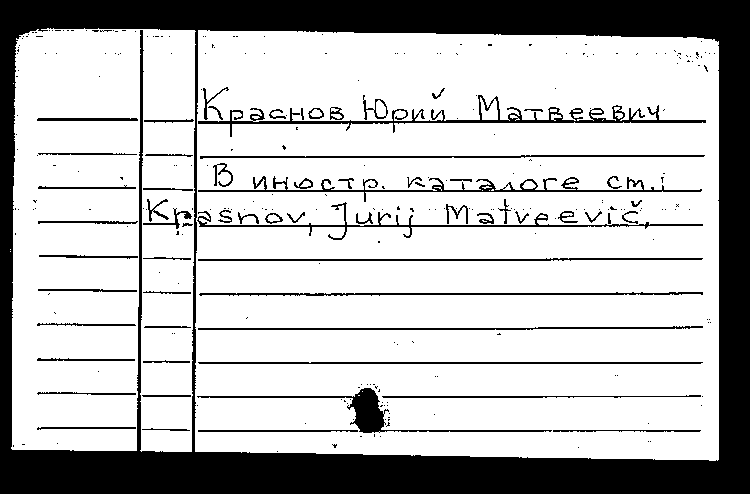 Краснов, Юрий Матвеевич
В иностр. каталоге см.:
Krasnov, Jurij Matveevič,